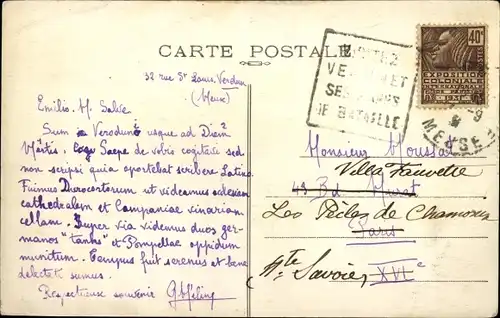 CARTE POSTALE
32 rue St Louis. Verdun
(Meuse)
Emilio. M. Salve
Sum Veroduni usque ad Diem
Martis. Saepe de vobis cogitavi sed
non scripsi quia oportebat scribere Latine
Fuimus Durocortorum et videamus
cathedralem et Campaniae vinariam
cellam. Super via videmus duos ger-
manos "tanks" et Pompellae oppidum
munitum. Tempus fuit serenus et bene
delectati sumus.
Respectueux souvenir
VERDUN ET
SES
DE BATAILLE
40c
EXPOSITION
COLONIALE
INTERNATIONALE
MEUSE
Monsieur Moussat
Villa Fauvette
43 Bd. Murat
Les Pècles de Chamonix
Paris
Hte Savoie XVIe